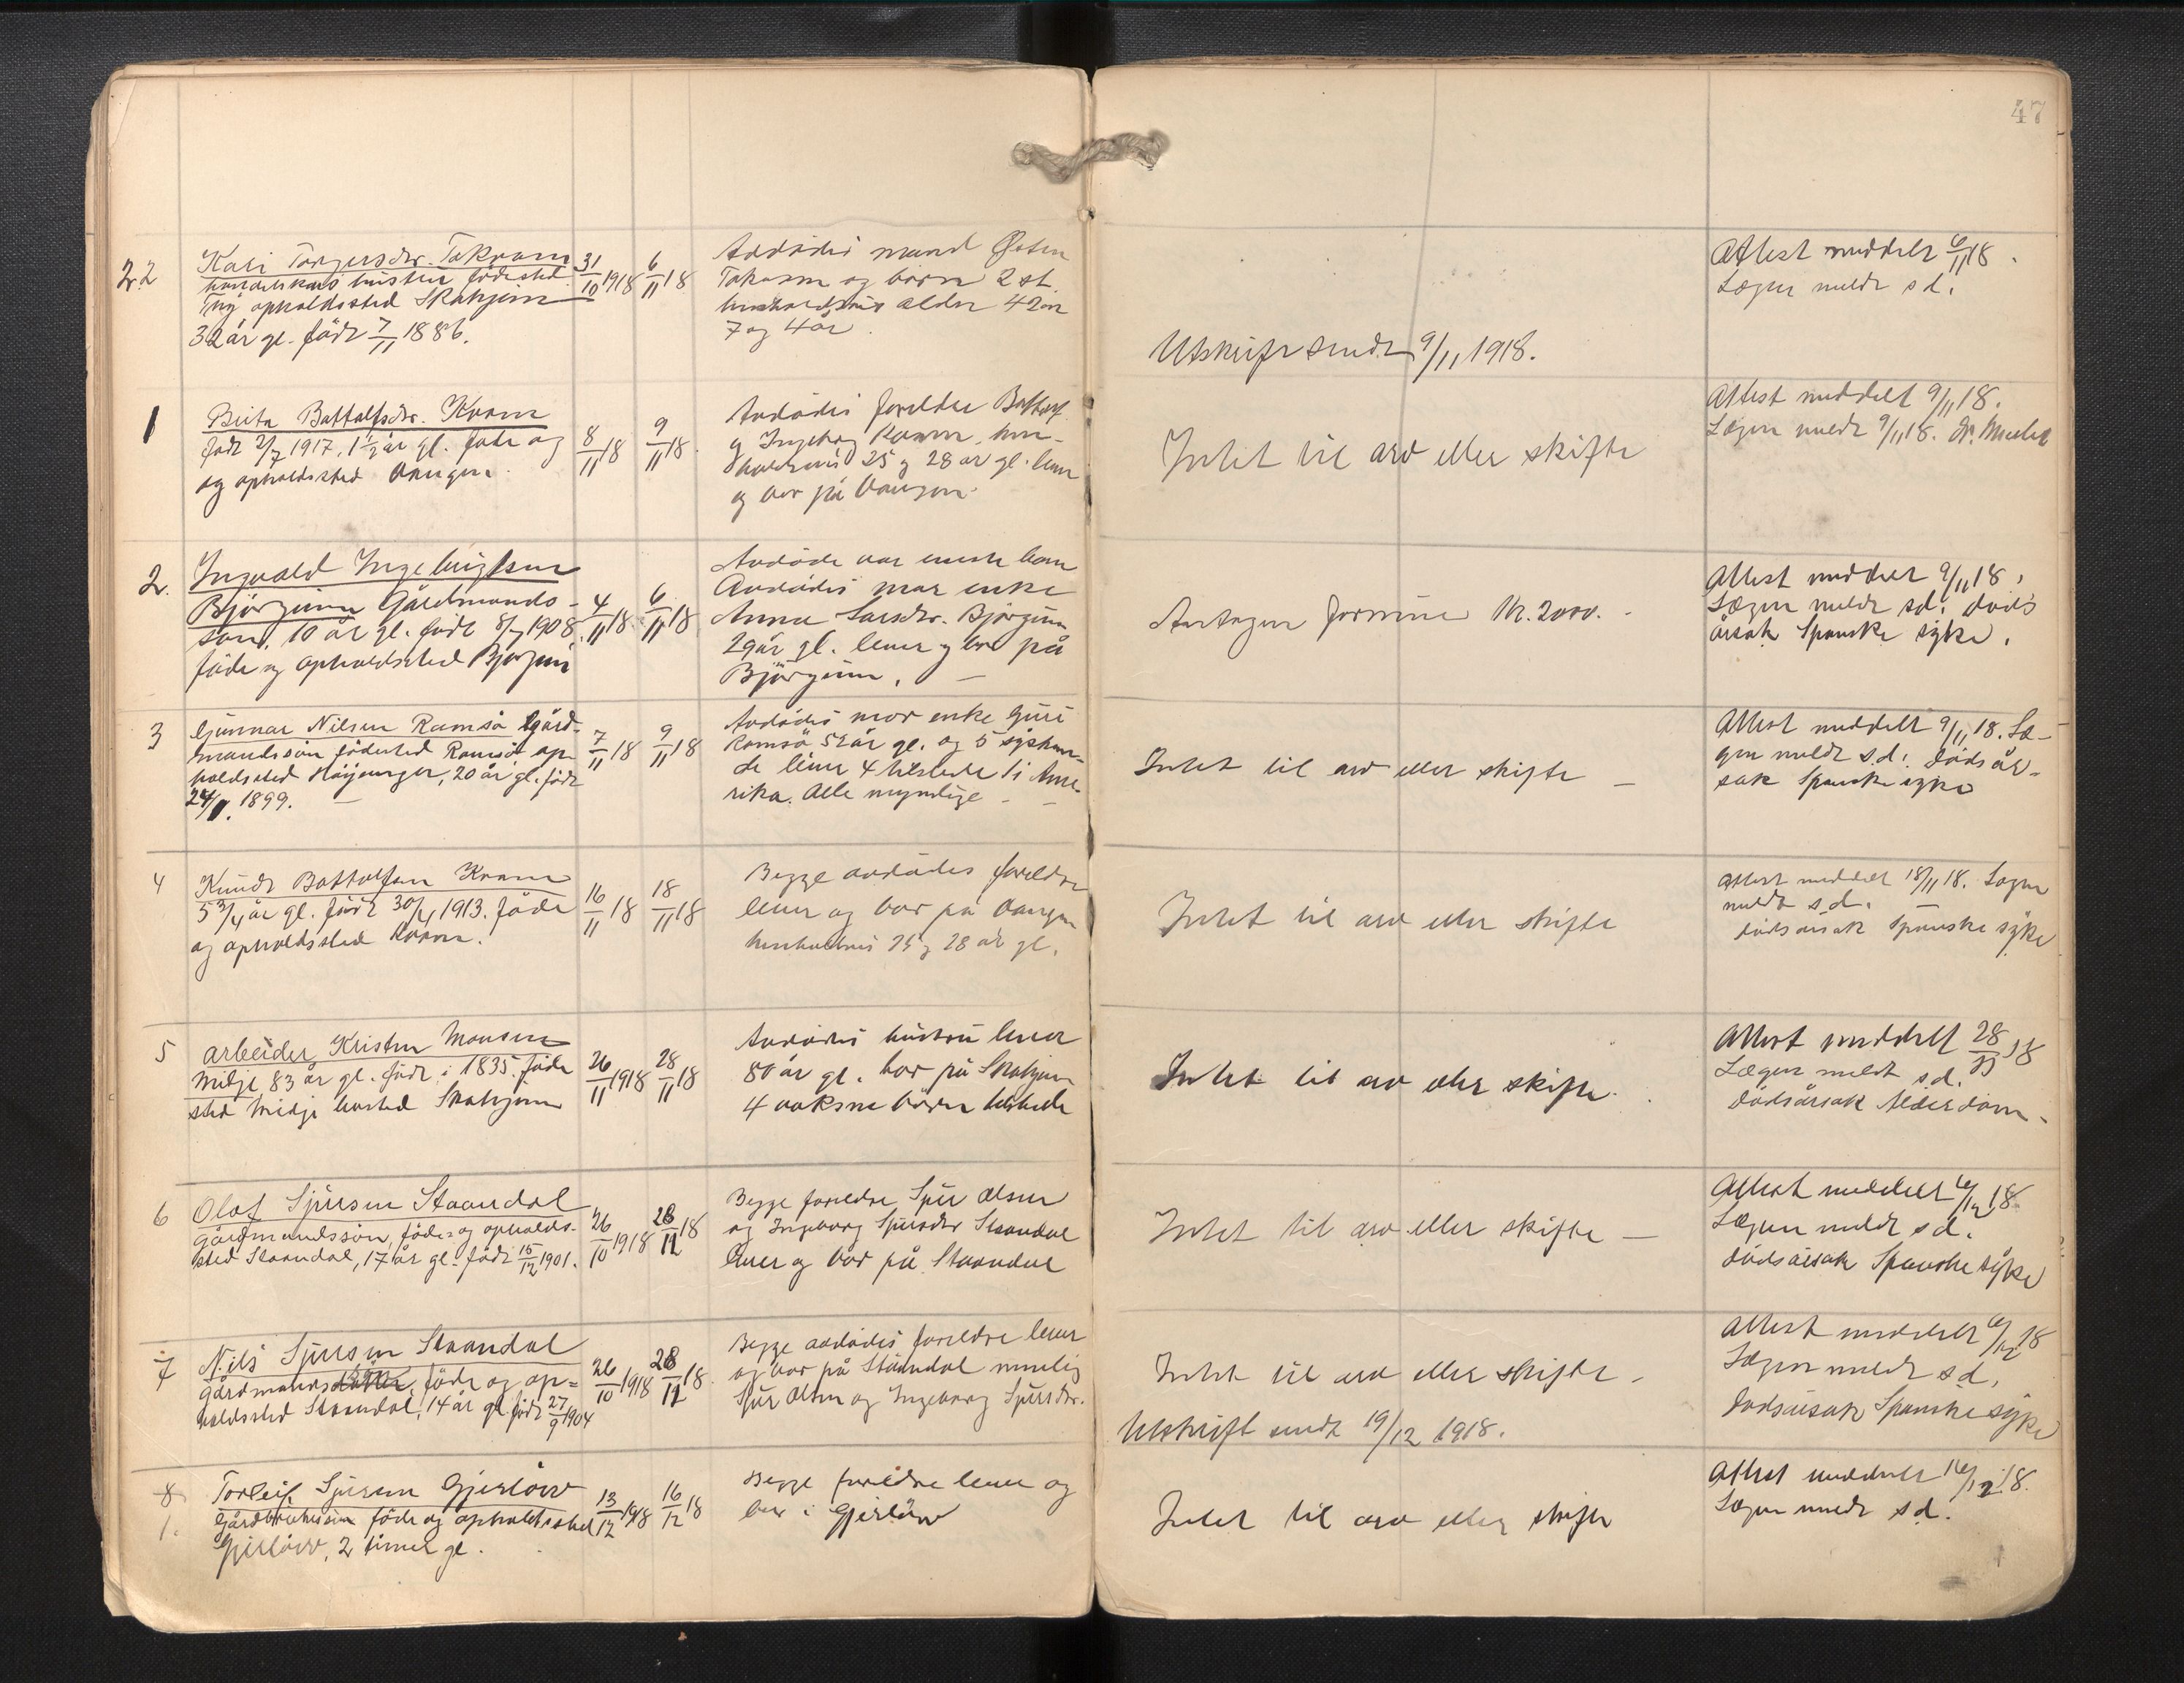 47
22
Kari Torgersdr. Takvam
handelskars hustru fødested
Thy opholdssted Skahjem
32 år gl. født 7/11 1886.
31/10 1918
6/11 18
Avdødes mand Østen
Takvam og børn 2 st.
henholdsvis alder 42 og
7 og 4 år.
Utskrift sendt 9/11 1918.
Attest meddelt 6/11 18.
Lægen meldt s d.
1
Brita Bottolfsdr. Kvam
født 2/7 1917, 1½ år gl. føde og
og opholdssted Vangen.
8/11 18
9/11 18.
Avdødes foreldre Bottolf
og Ingeborg Kvam, hen-
holdsvis 25 og 28 år gl. lever
og bor på Vangen.
Intet til arv eller skifte
Attest meddelt 9/11 18.
Lægen meldt 9/11 18. Dr.
2.
Ingvald Ingebrigtsen
Bjørgum Gårdmands-
søn, 10 år gl. født 8/7 1908.
føde og opholdssted Bjørgum
4/11 18.
6/11 18
Avdøde var eneste barn
Avdødes mor enke
Anna Larsdr. Bjørgum
29 år gl. lever og bor på
Bjørgum. —
Antagen formue Kr. 2000. -
Attest meddelt 9/11 18,
Lægen meldt sd. døds
årsak Spanske syke.
3
Gunnar Nilsen Ramsø gård-
mandssøn fødested Ramsø op-
holdssted 20 år gl. født
24/11. 1899. —
7/11 18
9/11 18
Avdødes mor enke Guri
Ramsø 52 år gl. og 5 søsken-
de lever 4 tilstede 1 i Ame-
rika. Alle myndige —
Intet til arv eller skifte —
Attest meddelt 9/11 18. Læ-
gen meldt s.d. Dødsår-
sak Spanske syke
4
Knudt Bottolfsen Kvam
5 3/4 år gl. født 30/4 1913. føde
og opholdssted Kvam.
16/11 18
18/11 18
Begge avdødes foreldre
lever og bor på Vangen
henholdsvis 25 og 28 år gl.
Intet til arv eller skifte
Attest meddelt 18/11 18. Lægen
meldt s.d.
dødsårsak Spanske syke
5
Arbeider Kristen Monsen
Midje 83 år gl. født i 1835. føde
sted Midje bosted Skahjem
26/11 1918
28/11 18
Avdødes hustru lever
80 år gl. bor på Skahjem
4 voksne børn tilstede
Intet til arv eller skifte.
Attest meddelt 28/11 18
Lægen meldt s.d.
Dødsårsak Alderdom -
6
Olaf Sjursen Staandal
gårdmandssøn, føde- og opholds-
sted Staandal, 17 år gl. født 15/12 1901.
26/10 1918
28/12 18
Begge foreldre Sjur Olsen
og Ingeborg Sjursdr Staandal
lever og bor på Staandal
Intet til arv eller skifte —
Attest meddelt 6/12 18.
Lægen meldt s d.
Dødsårsak Spanske syke
7
Nils Sjursen Staandal
gårdmands føde og op-
holdssted Staandal, 14 år gl. født 27/9 1904
26/10 1918
28/12 18.
Begge avdødes foreldre lever
og bor på Staandal nemlig
Sjur Olsen og Ingeborg Sjursdr.
Intet til arv eller skifte -
Utskrift sendt 19/12 1918.
Attest meddelt 6/12 18
Lægen meldt s d.
Dødsårsak Spanske syke
8
1.
Torleif Sjursen Gjerløw
Gårdbrukersøn føde og opholdssted
Gjerløw, 2 timer gl.
13/12 1918
16/12 18
Begge foreldre lever og
bor i Gjerløw
Intet til arv eller skifte
Attest meddelt 16/12 18.
Lægen meldt s d.